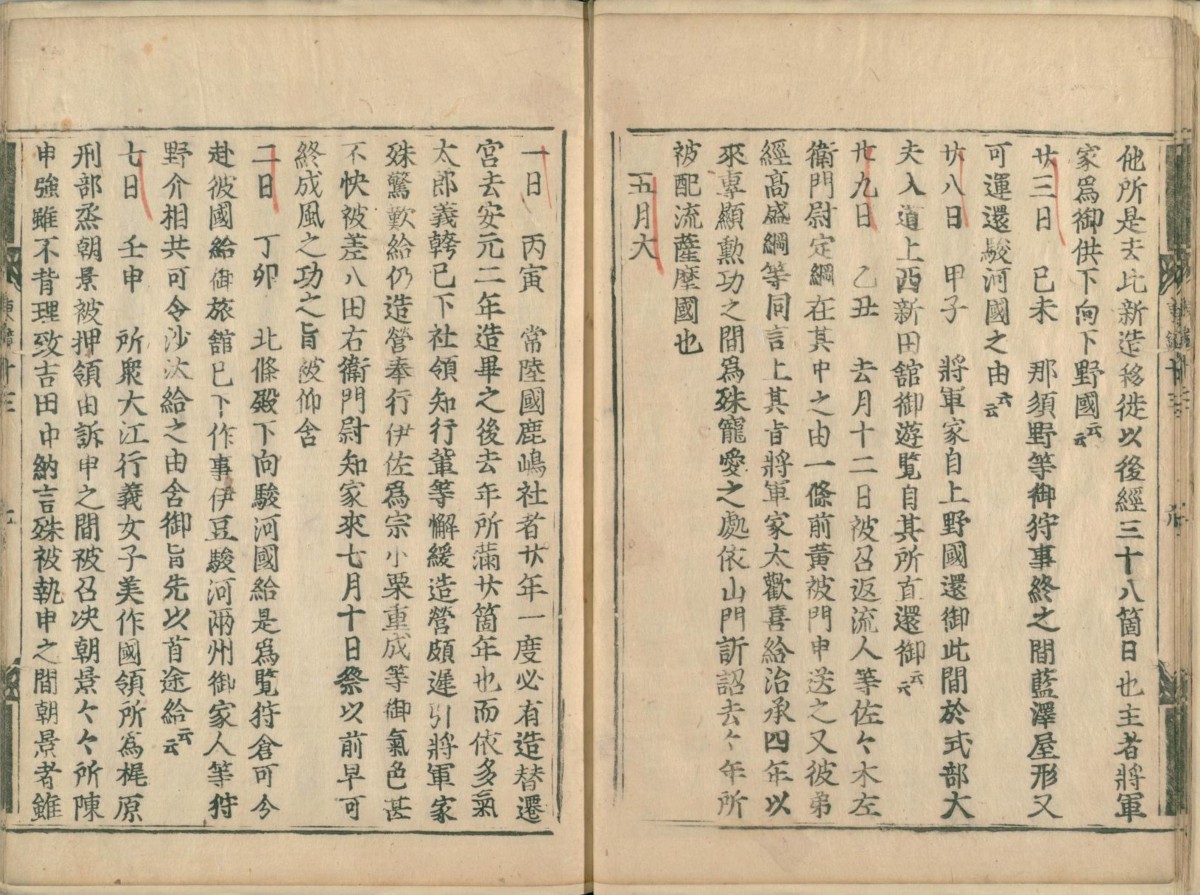 他所是去比新造移徙以後經三十八箇日也主者將軍
家爲御供下向下野國云云
廿三日 己未 那須野等御狩事終之間藍澤屋形又
可運還駿河國之由云云
廿八日 甲子 將軍家自上野國還御此間於式部大
夫入道上西新田舘御遊覧自其所直還御云云
廿九日 乙丑 去月十二日被召返流人等佐々木左
衛門尉定綱在其中之由一條前黄被門申送之又彼弟
經高盛綱等同言上其旨將軍家太歡喜給治承四年以
來專顯勲功之間爲殊寵愛之處依山門訴詔去々年所
被配流薩摩國也
五月大
一日 丙寅 常陸國鹿嶋社者廿年一度必有造替遷
宮去安元二年造畢之後去年所滿廿箇年也而依多氣
太郎義幹已下社領知行輩等懈緩造營頗遲引將軍家
殊驚歎給仍造營奉行伊佐爲宗小栗重成等御氣色甚
不快被差八田右衛門尉知家來七月十日祭以前早可
終成風之功之旨被仰含
二日 丁卯 北條殿下向駿河國給是爲覧狩倉可今
赴彼國給御旅舘已下作事伊豆駿河兩州御家人等狩
野介相共可令沙汰給之由含御旨先以首途給云云
七日 壬申 所衆大江行義女子美作國領所爲梶原
刑部烝朝景被押領由訴申之間被召决朝景々々所陳
申強雖不背理致吉田中納言殊被執申之間朝景者雖